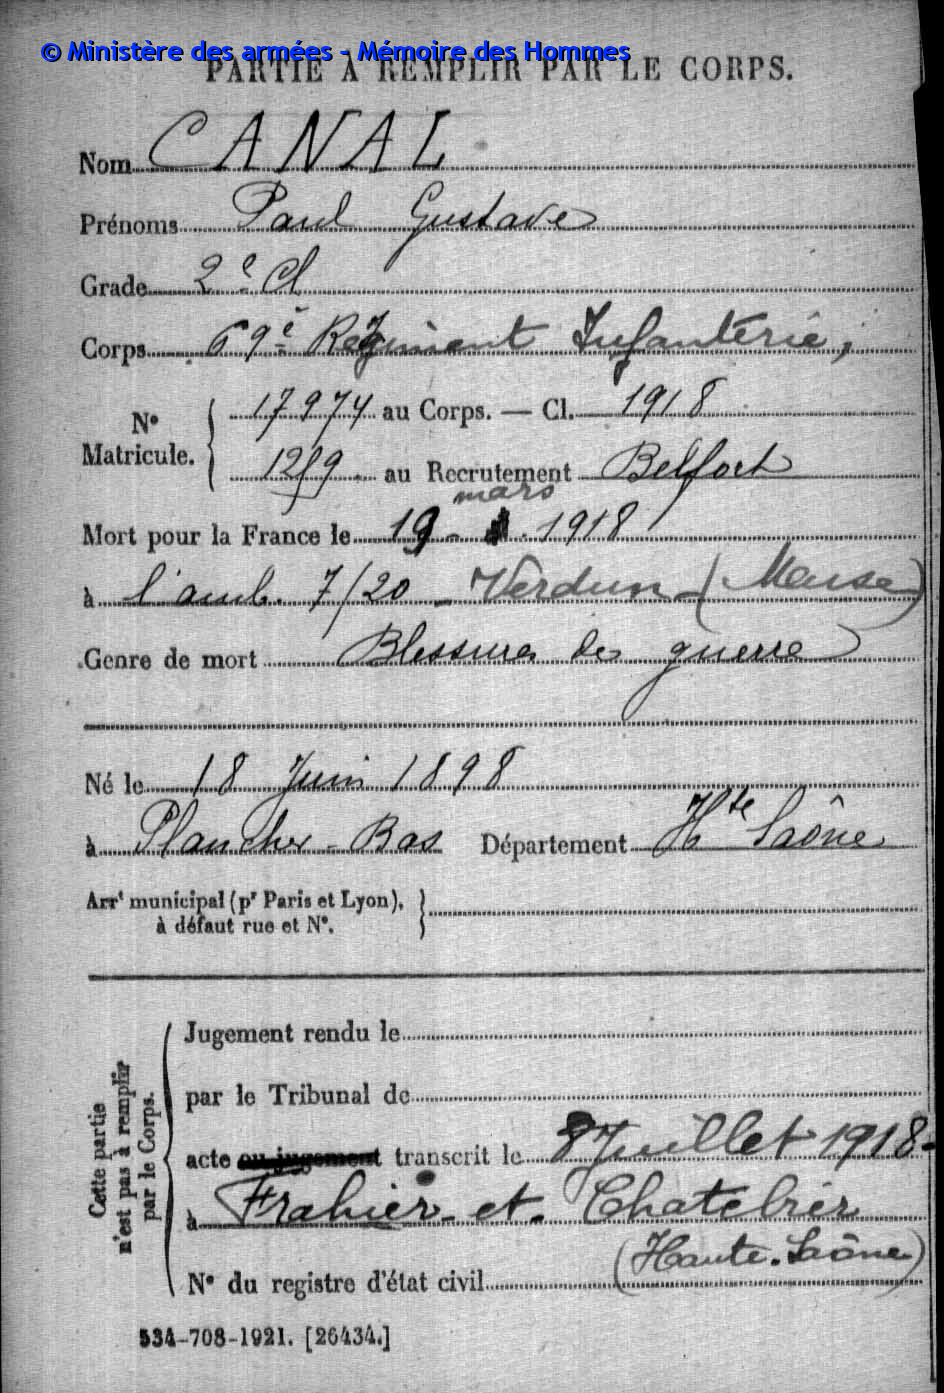 © Ministère des armées - Mémoire des Hommes
PARTIE À REMPLIR PAR LE CORPS.
Nom CANAL
Prénoms Paul Gustave
Grade 2e Cl
Corps 69e Régiment Infanterie,
N° Matricule. 17974 au Corps. — Cl. 1918
1259 au Recrutement Belfort
mars
Mort pour la France le 19 - . 1918
à l'amb. 7/20 - Verdun - (Meuse)
Genre de mort Blessures de guerre
Né le 18 Juin 1898
à Plancher-Bas Département Hte Saône
Arrt municipal (pr Paris et Lyon),
à défaut rue et N°.
Cette partie
n'est pas à remplir
par le Corps.
Jugement rendu le
par le Tribunal de
acte ou jugement transcrit le 8 Juillet 1918-
à Frahier - et - Chatebier
(Haute-Saône)
N° du registre d'état civil
534-708-1921. [26434.]